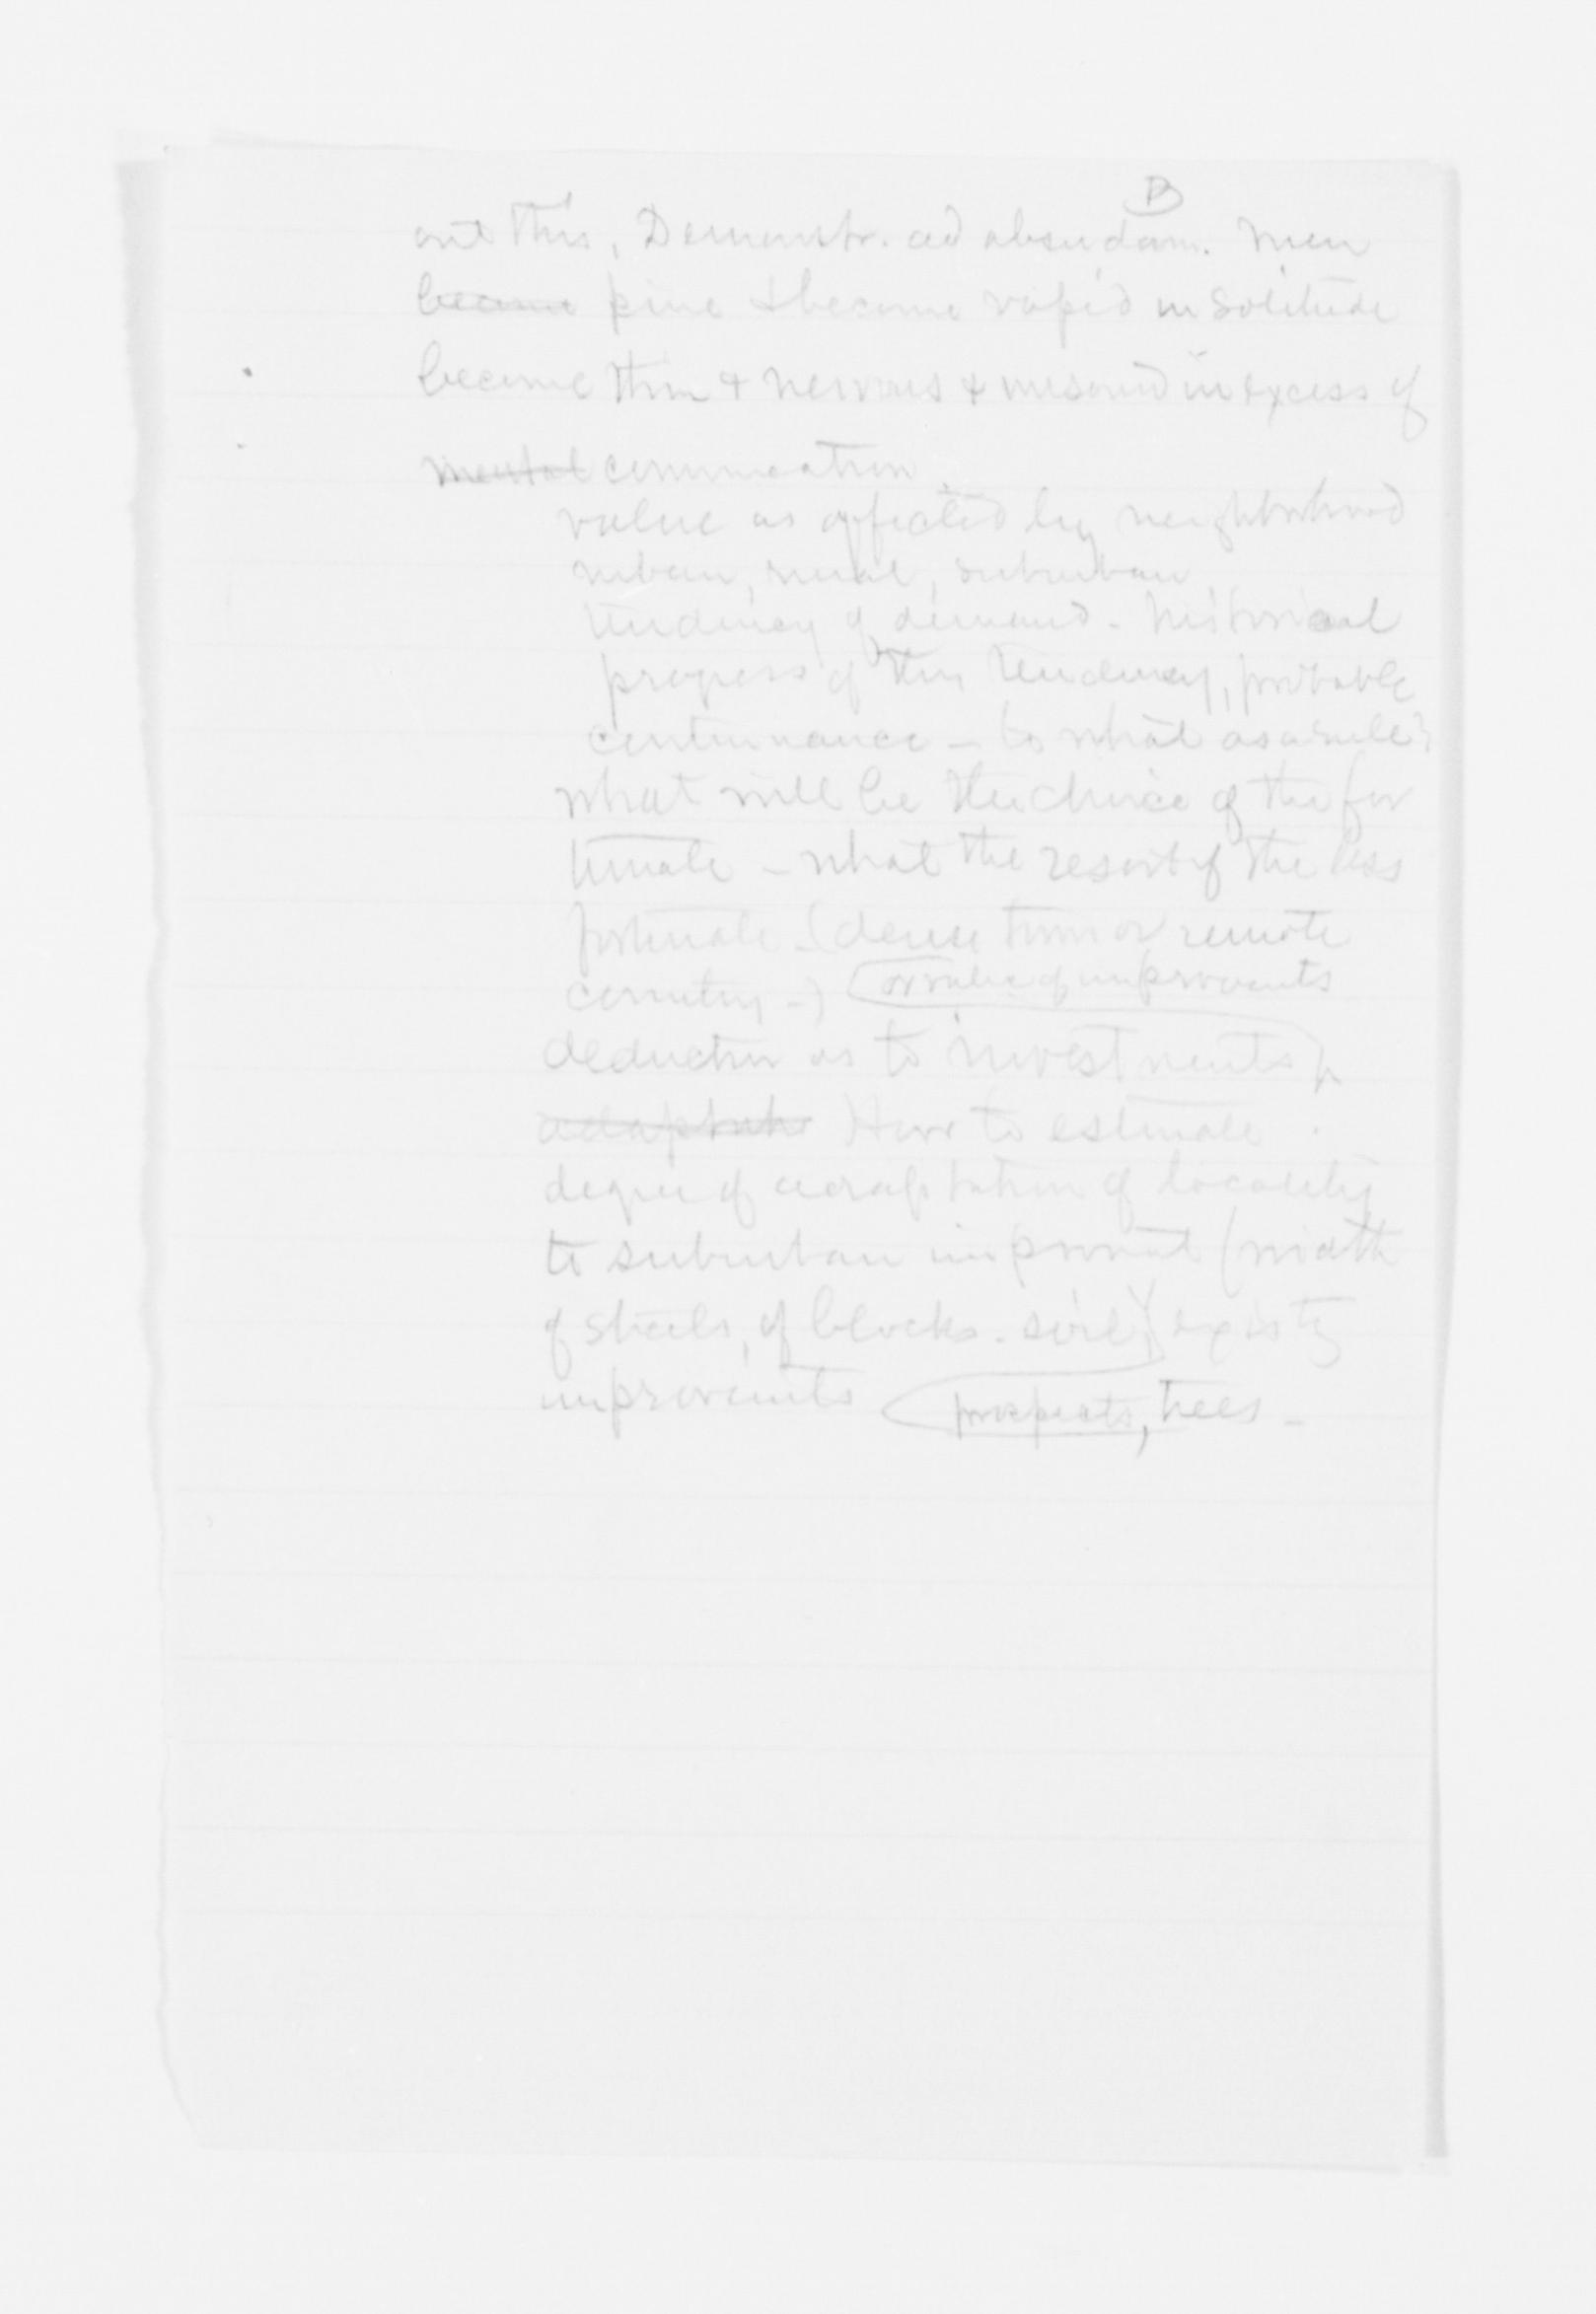 B
out this, Demonstr. ad absurdam. Men
became pine & become vapid in solitude
become thin & nervous & unsound in excess of
mental commication.
value as affected by neighborhood
urban, rural, suburban,
tendency of demand - historical
progress of this tendency, probable
continuance - to what as a rule?
what will be the choice of the for
tunate - what the resort of the less
fortunate - (dense town or remote
country -) or value of improvents
deduction as to investments
How to estimate
degree of adaptation of locality
to suburban improvnt (width
of streets, of blocks. soil) existg
improvents prospects, trees -